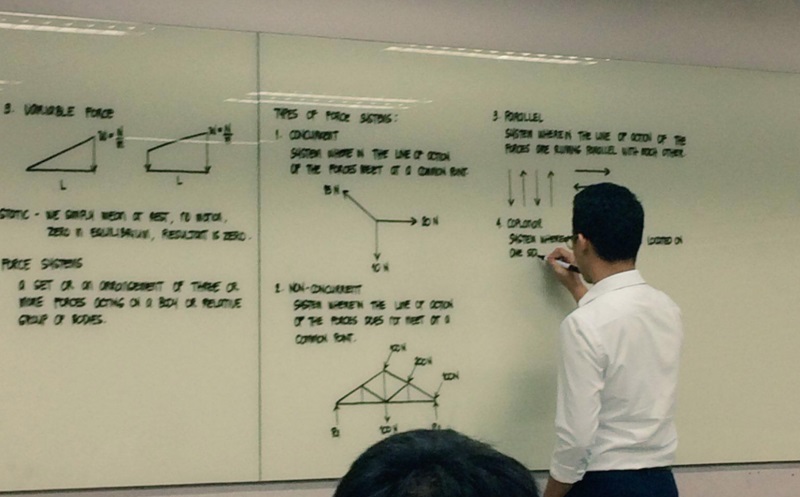 3. VARIABLE FORCE
W = N/M
W = N/M
L
L
STATIC - WE SIMPLY MEAN AT REST, NO MOTION,
ZERO IN EQUILIBRIUM, RESULTANT IS ZERO.
FORCE SYSTEMS
A SET OR AN ARRANGEMENT OF THREE OR
MORE FORCES ACTING ON A BODY OR RELATIVE
GROUP OF BODIES.
TYPES OF FORCE SYSTEMS:
1. CONCURRENT
SYSTEM WHERE IN THE LINE OF ACTION
OF THE FORCES MEET AT A COMMON POINT.
15 N
20 N
10 N
2. NON-CONCURRENT
SYSTEM WHEREIN THE LINE OF ACTION
OF THE FORCES DOES NOT MEET AT A
COMMON POINT.
200 N
3. PARALLEL
SYSTEM WHERE IN THE LINE OF ACTION OF THE
FORCES ARE RUNING PARALLEL WITH EACH OTHER.
4. COPLANAR
SYSTEM LOCATED ON
ONE